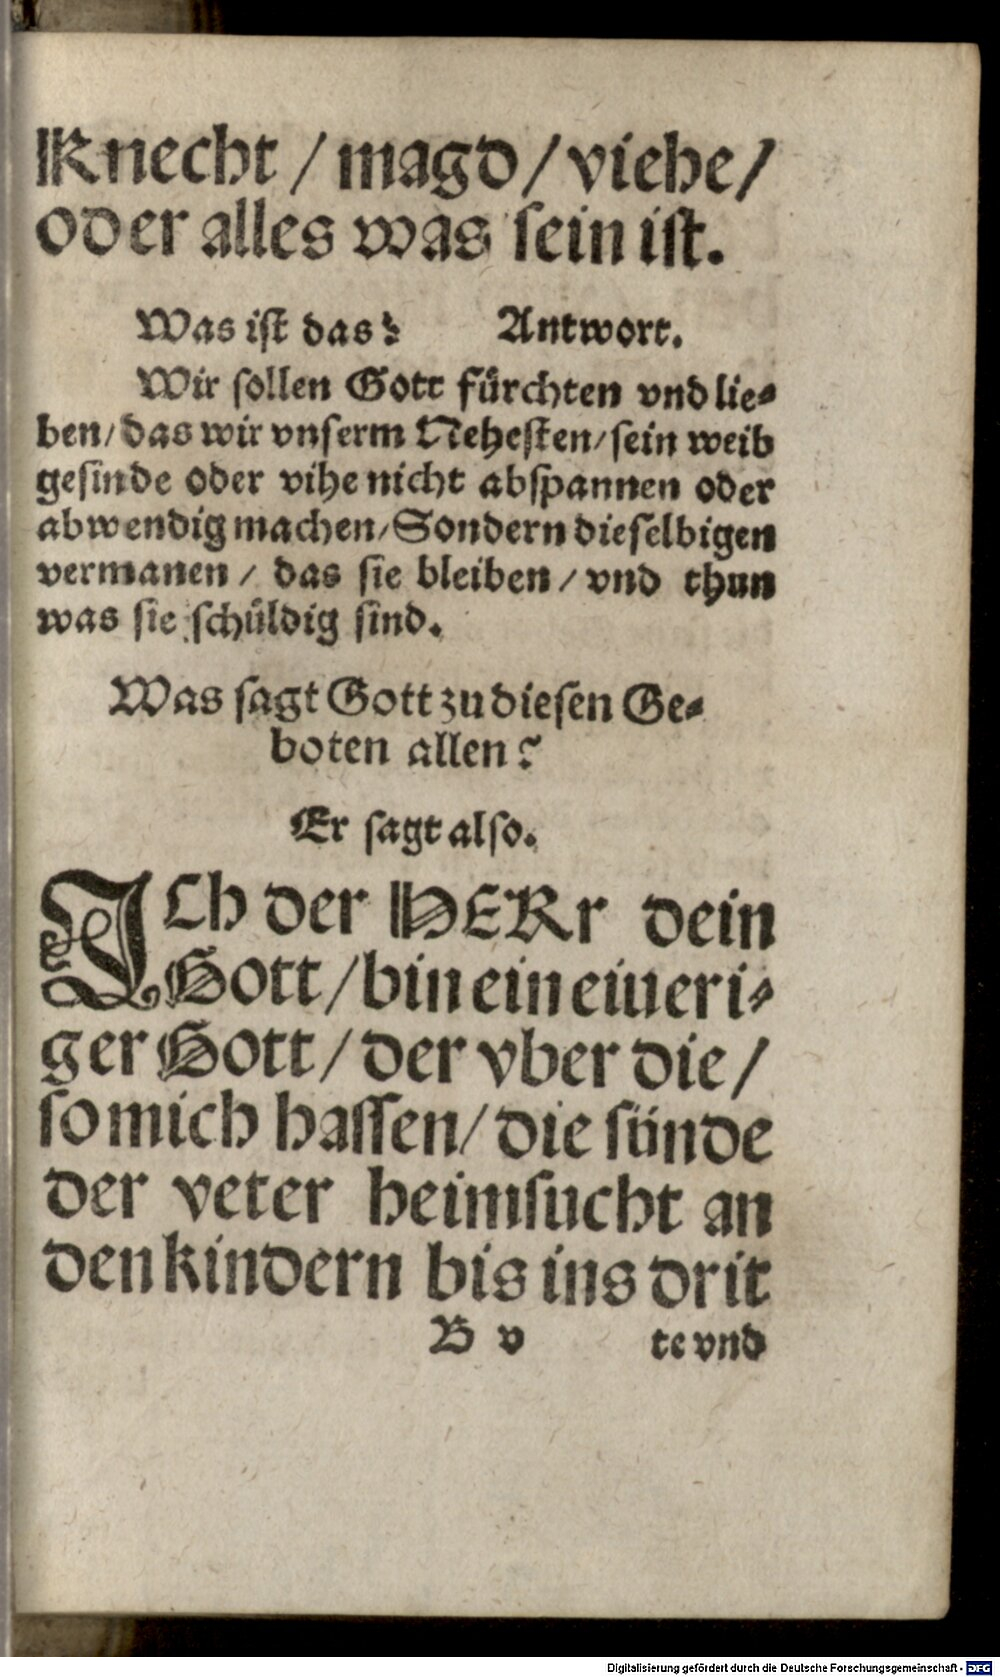 Knecht / magd / viehe /
oder alles was sein ist.
Was ist das? Antwort.
Wir sollen Gott fürchten vnd lie-
ben / das wir vnserm Nehesten / sein weib
gesinde oder vihe nicht abspannen oder
abwendig machen / Sondern dieselbigen
vermanen / das sie bleiben / vnd thun
was sie schüldig sind.
Was sagt Gott zu diesen Ge-
boten allen?
Er sagt also.
ICh der HERr dein
Gott / bin ein eiueri-
ger Gott / der vber die /
so mich hassen / die sünde
der veter heimsucht an
den kindern bis ins drit
B v te vnd
Digitalisierung gefördert durch die Deutsche Forschungsgemeinschaft - DFG